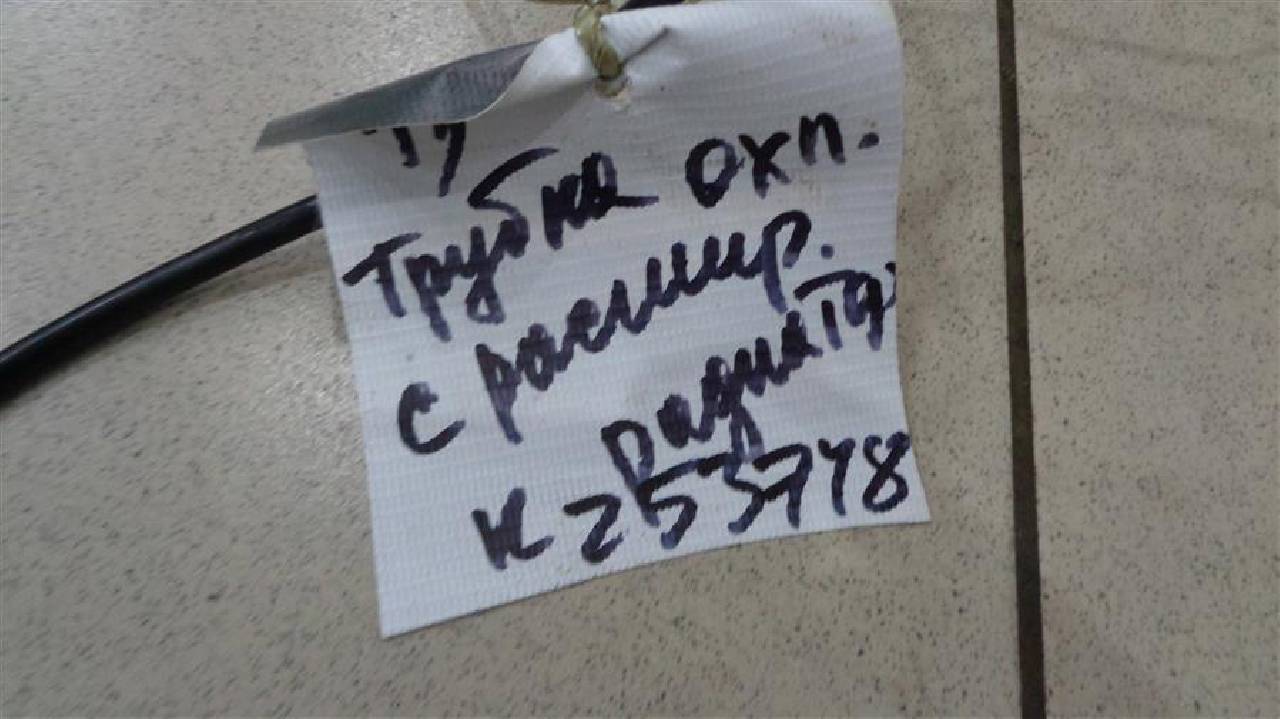 Трубка охл.
с расшир.
радиатор
к 253748